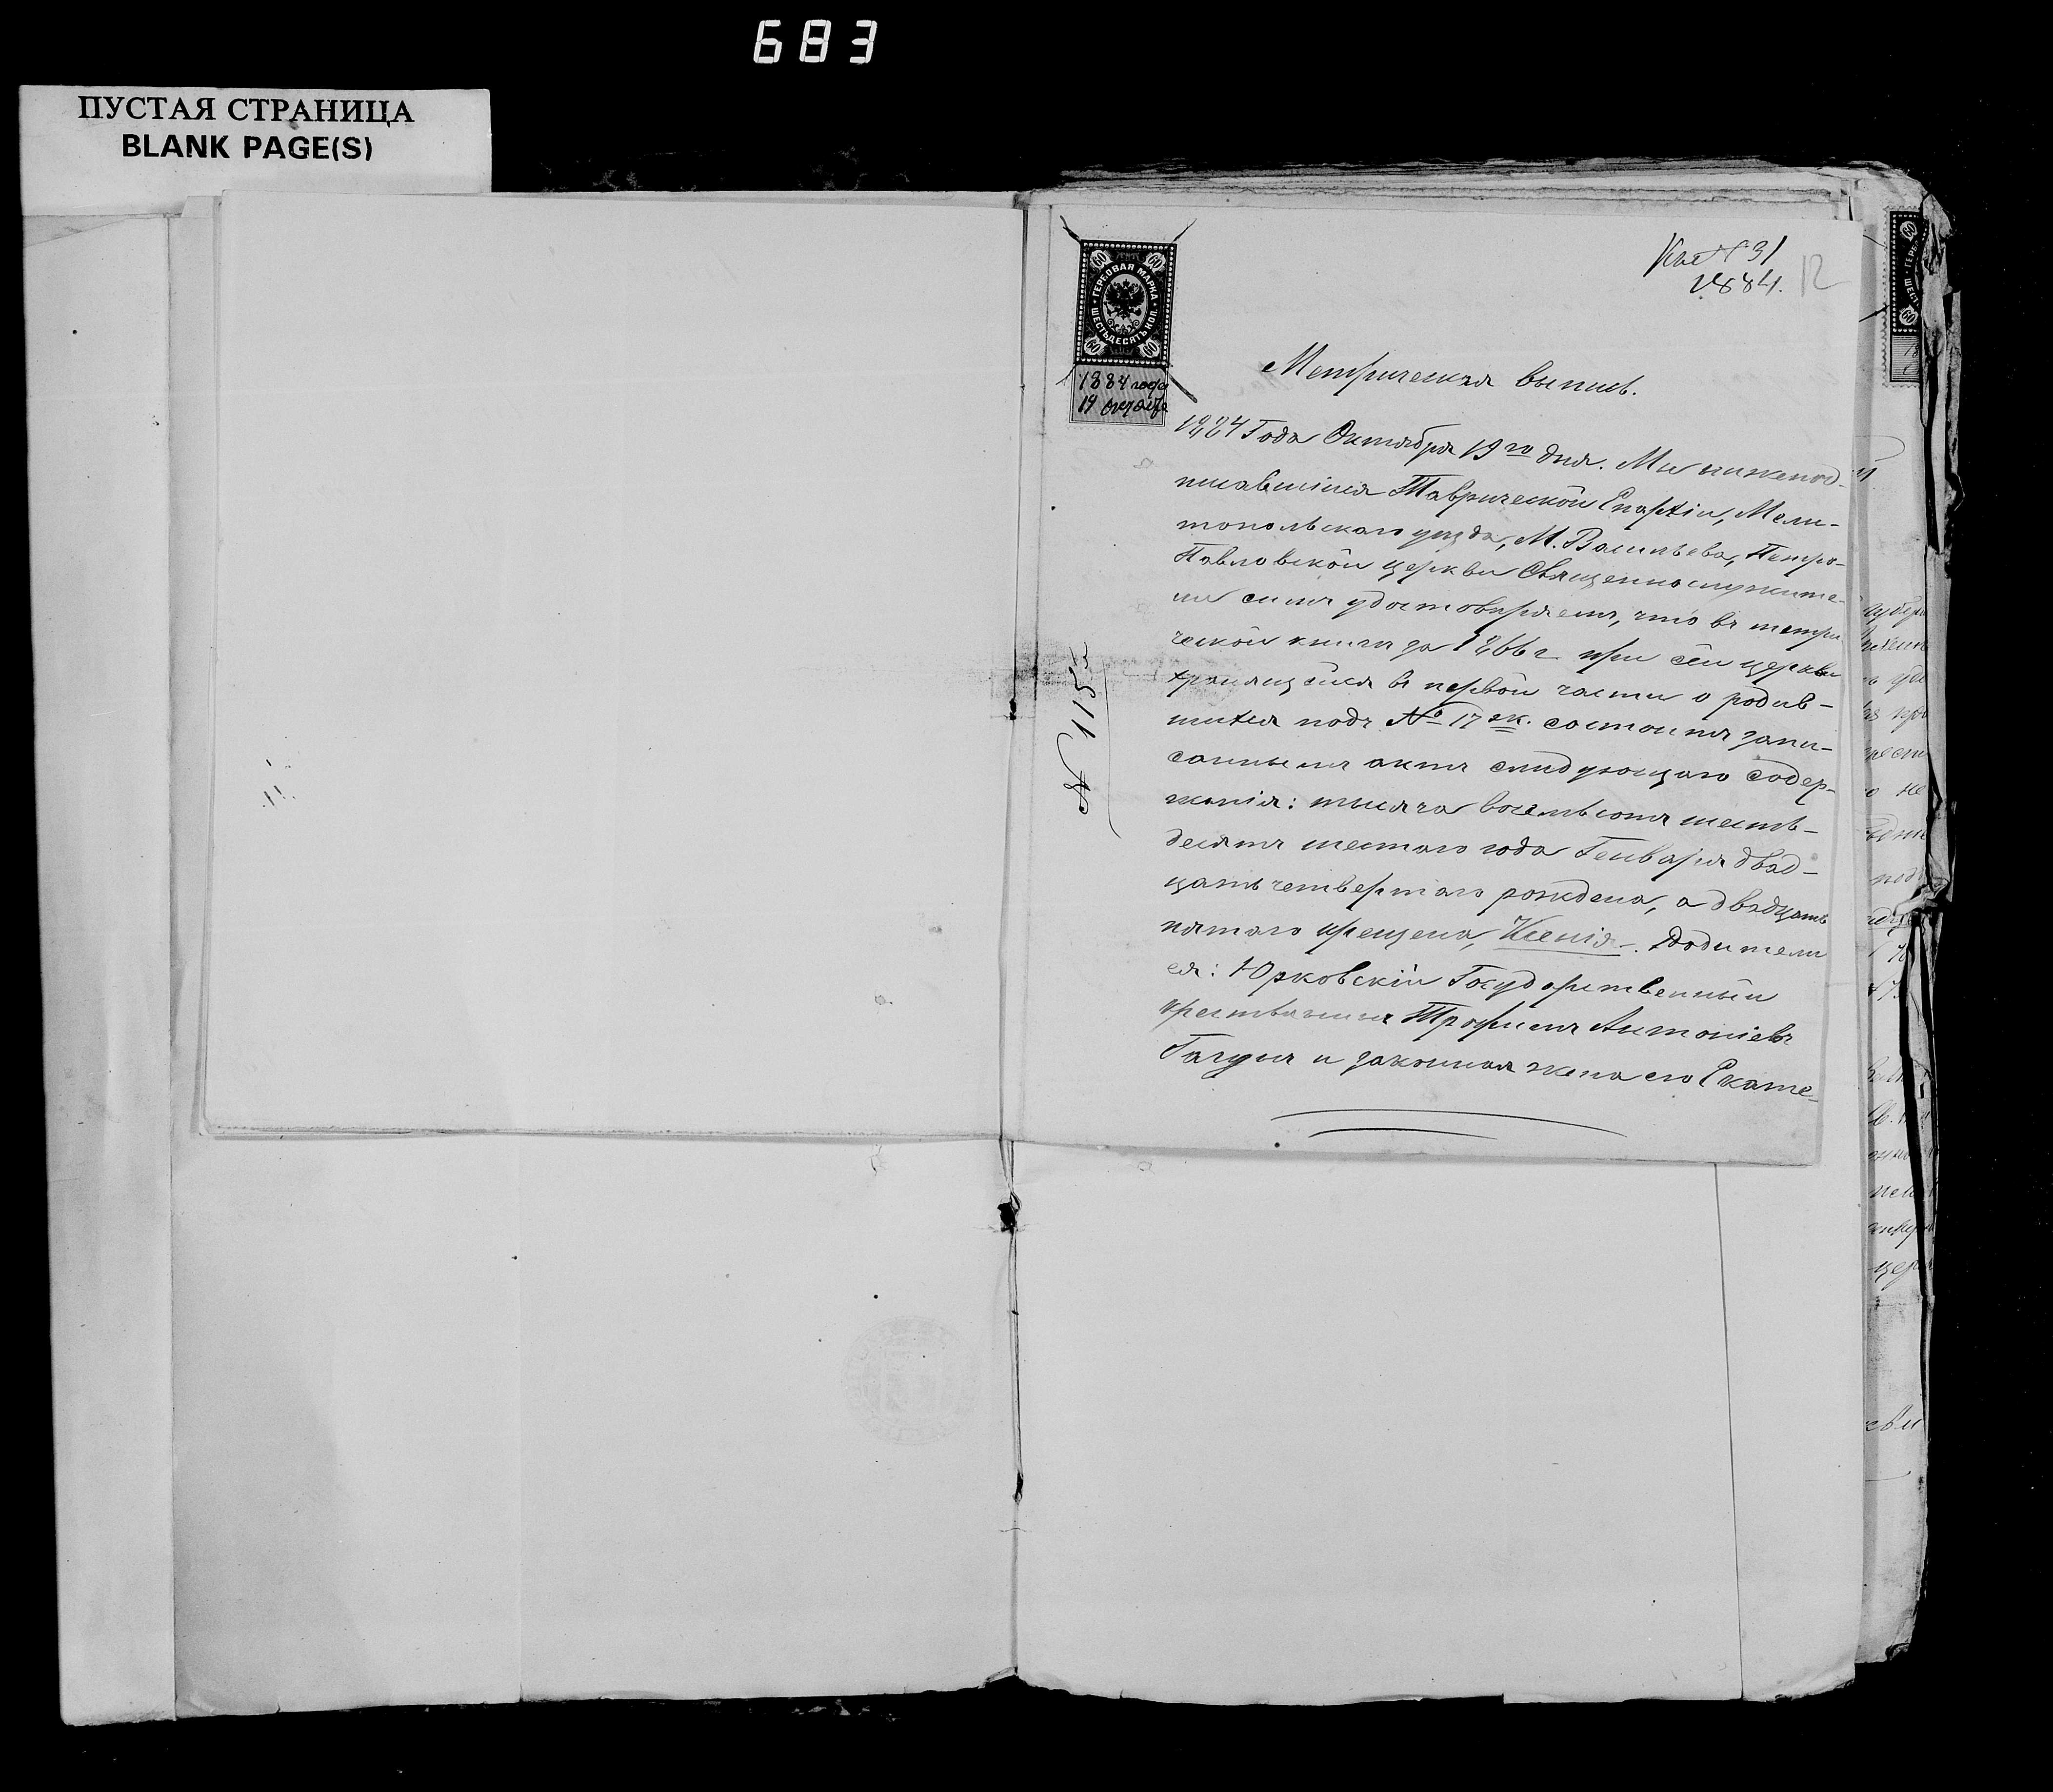 683
ПУСТАЯ СТРАНИЦА
BLANK PAGE(S)
№ 31
1884.
12
60 60
ГЕРБОВАЯ МАРКА
ШЕСТЬДЕСЯТЪ КОП.
60 60
1884 года
19 Октября
№ 115
Метрическая выпись.
1884 Года Октября 19го дня. Мы нижепод-
писавшіися Таврической Епархіи, Мели-
топольскаго уѣзда, М. Васильева, Петро-
Павловской церкви Священнослужите-
ли симъ удостовѣряемъ, что въ метри
ческой книгѣ за 1866 г при сей церкви
хранящейся въ первой части о родив-
шихся подъ № 17 ж. состоитъ запи-
саннымъ актъ слѣдующаго содер-
жанія: тысяча восемьсотъ шесть-
десятъ шестаго года Генваря двад-
цать четвертаго рождена, а двадцать
пятаго крещена, Ксенія. Родители
ея: Юрковскій Государственный
крестьянинъ Трофимъ Антоніевъ
и законная жена его Екате-